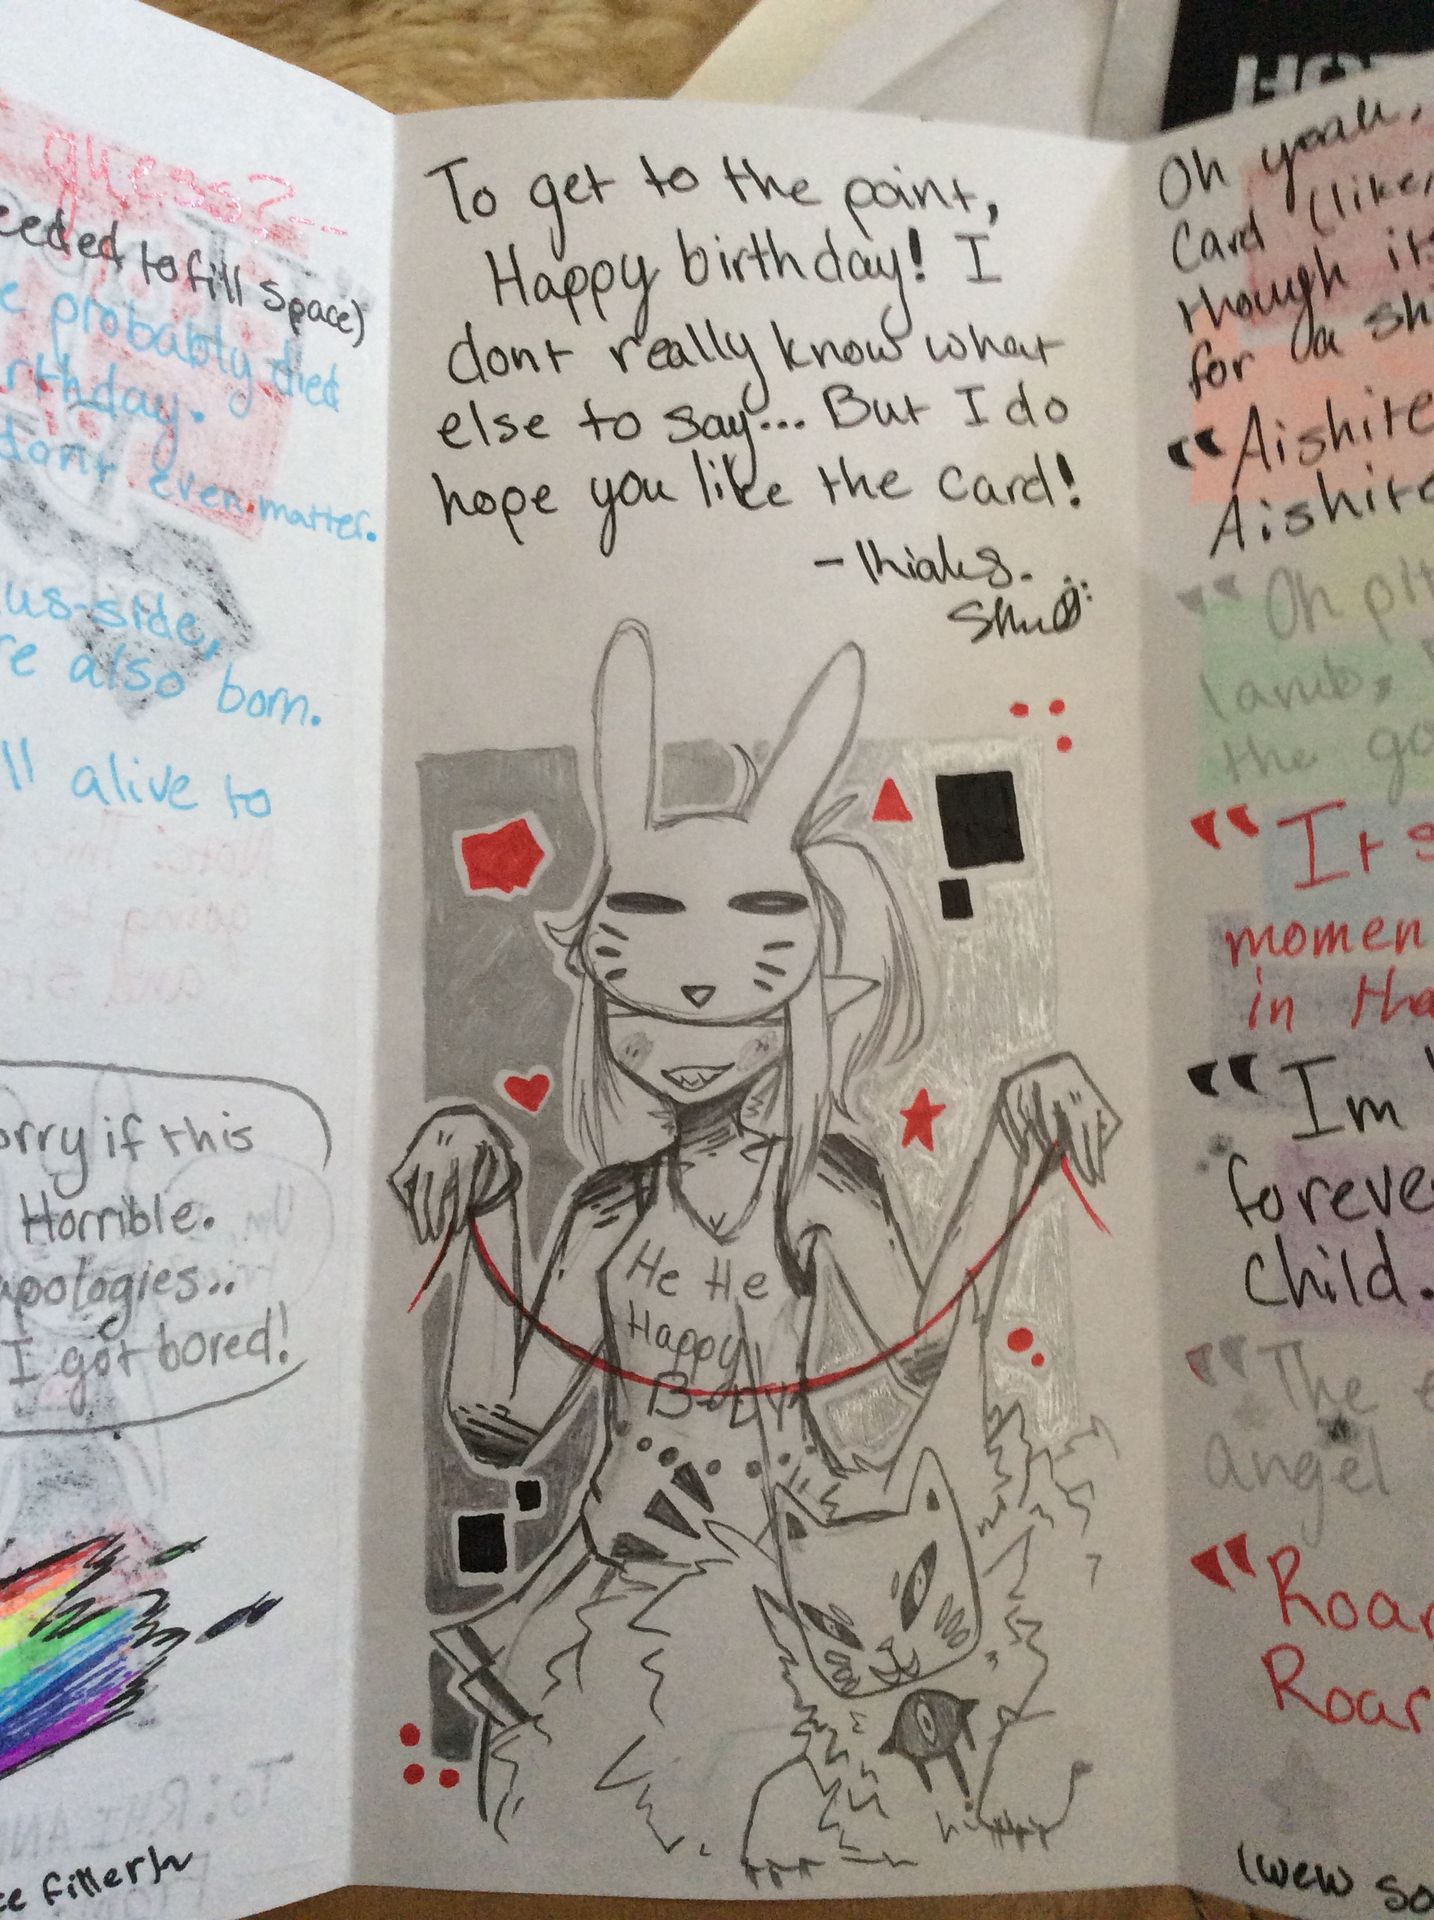 guess2..
eeded to fill space)
e probably died
rthday.
dont even matter.
us-side,
re also born.
ll alive to
orry if this
Horrible.
apologies..
I got bored!
To:
ce filler)~
To get to the point,
Happy birthday! I
dont really know what
else to say... But I do
hope you like the card!
He He
Happy
B-DY
Oh yeah,
Card (like,
though it
for a sh
"Aishite
Aishite
"Oh pl
lamb,
the go
"It s
momen
in the
"Im
foreve
child.
"The e
angel
"Roar
Roar
(wew so